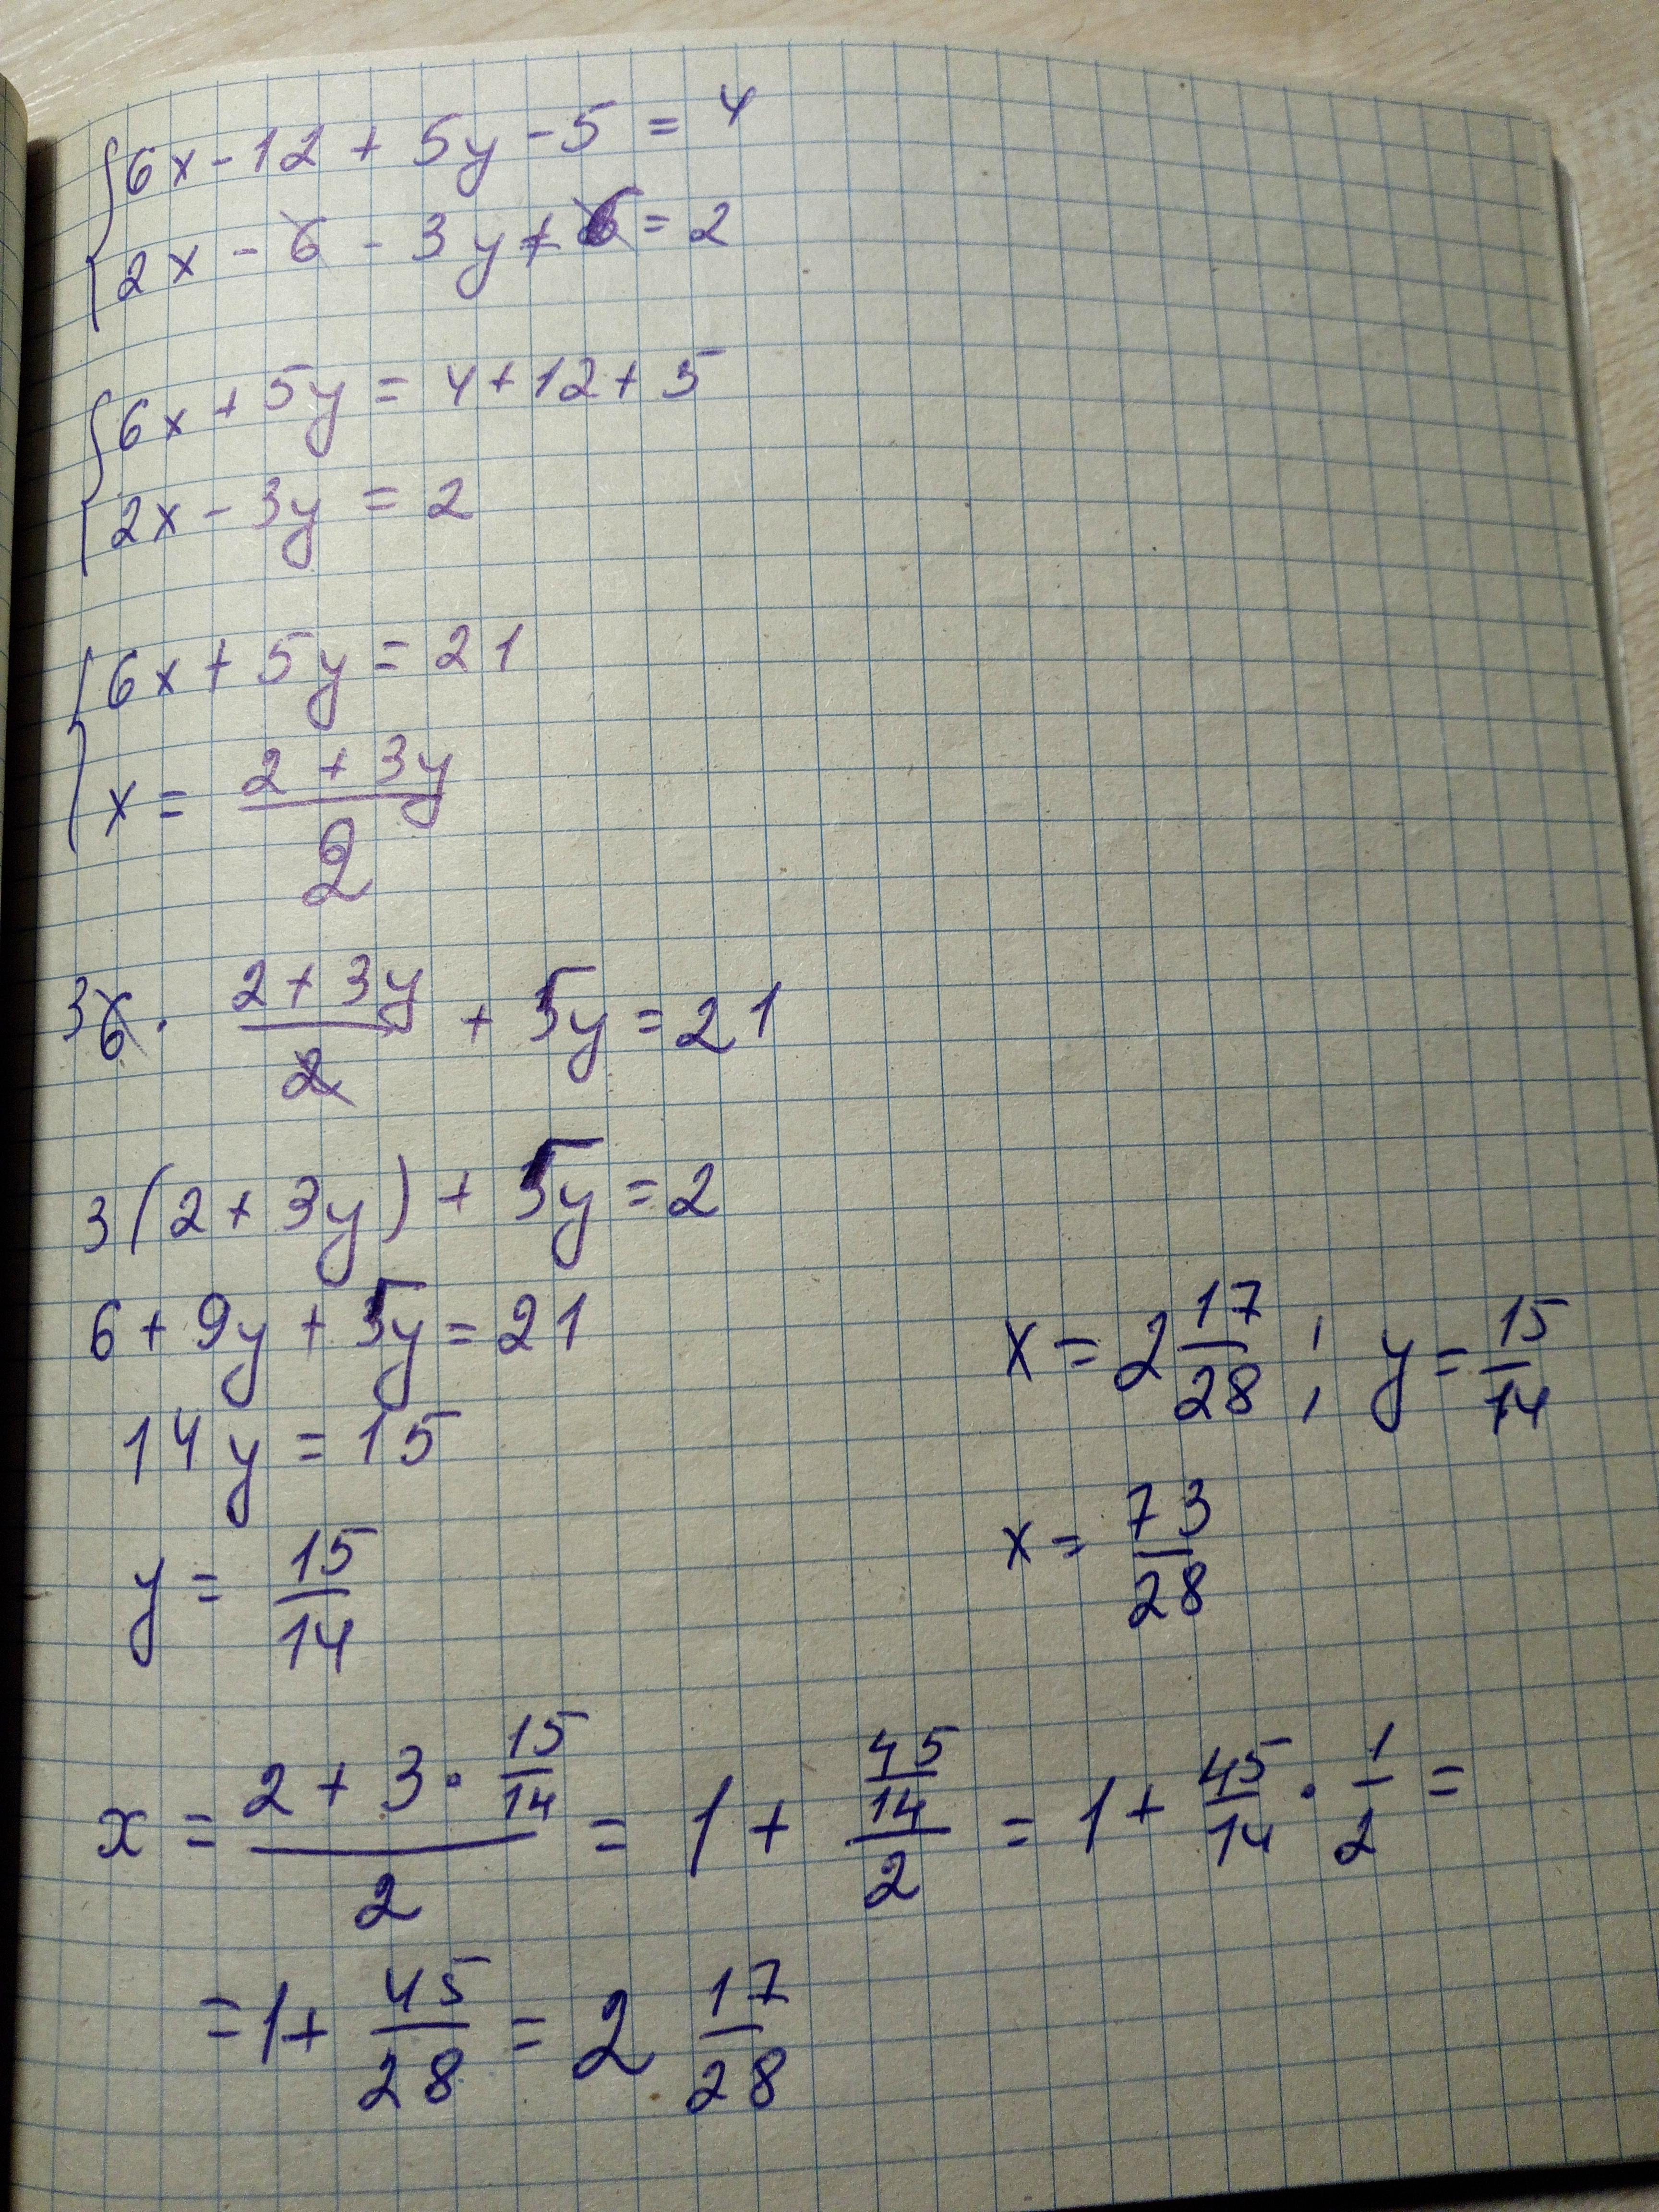 6x - 12 + 5y - 5 = 4
2x - 6 - 3y + 6 = 2
6x + 5y = 4 + 12 + 5
2x - 3y = 2
6x + 5y = 21
x = (2 + 3y)/2
3 6 · (2 + 3y)/2 + 5y = 21
3(2 + 3y) + 5y = 2
6 + 9y + 5y = 21
14y = 15
y = 15/14
x = 2 17/28 ; y = 15/14
x = 73/28
x = (2 + 3 · 15/14)/2 = 1 + (45/14)/2 = 1 + 45/14 · 1/2 =
= 1 + 45/28 = 2 17/28